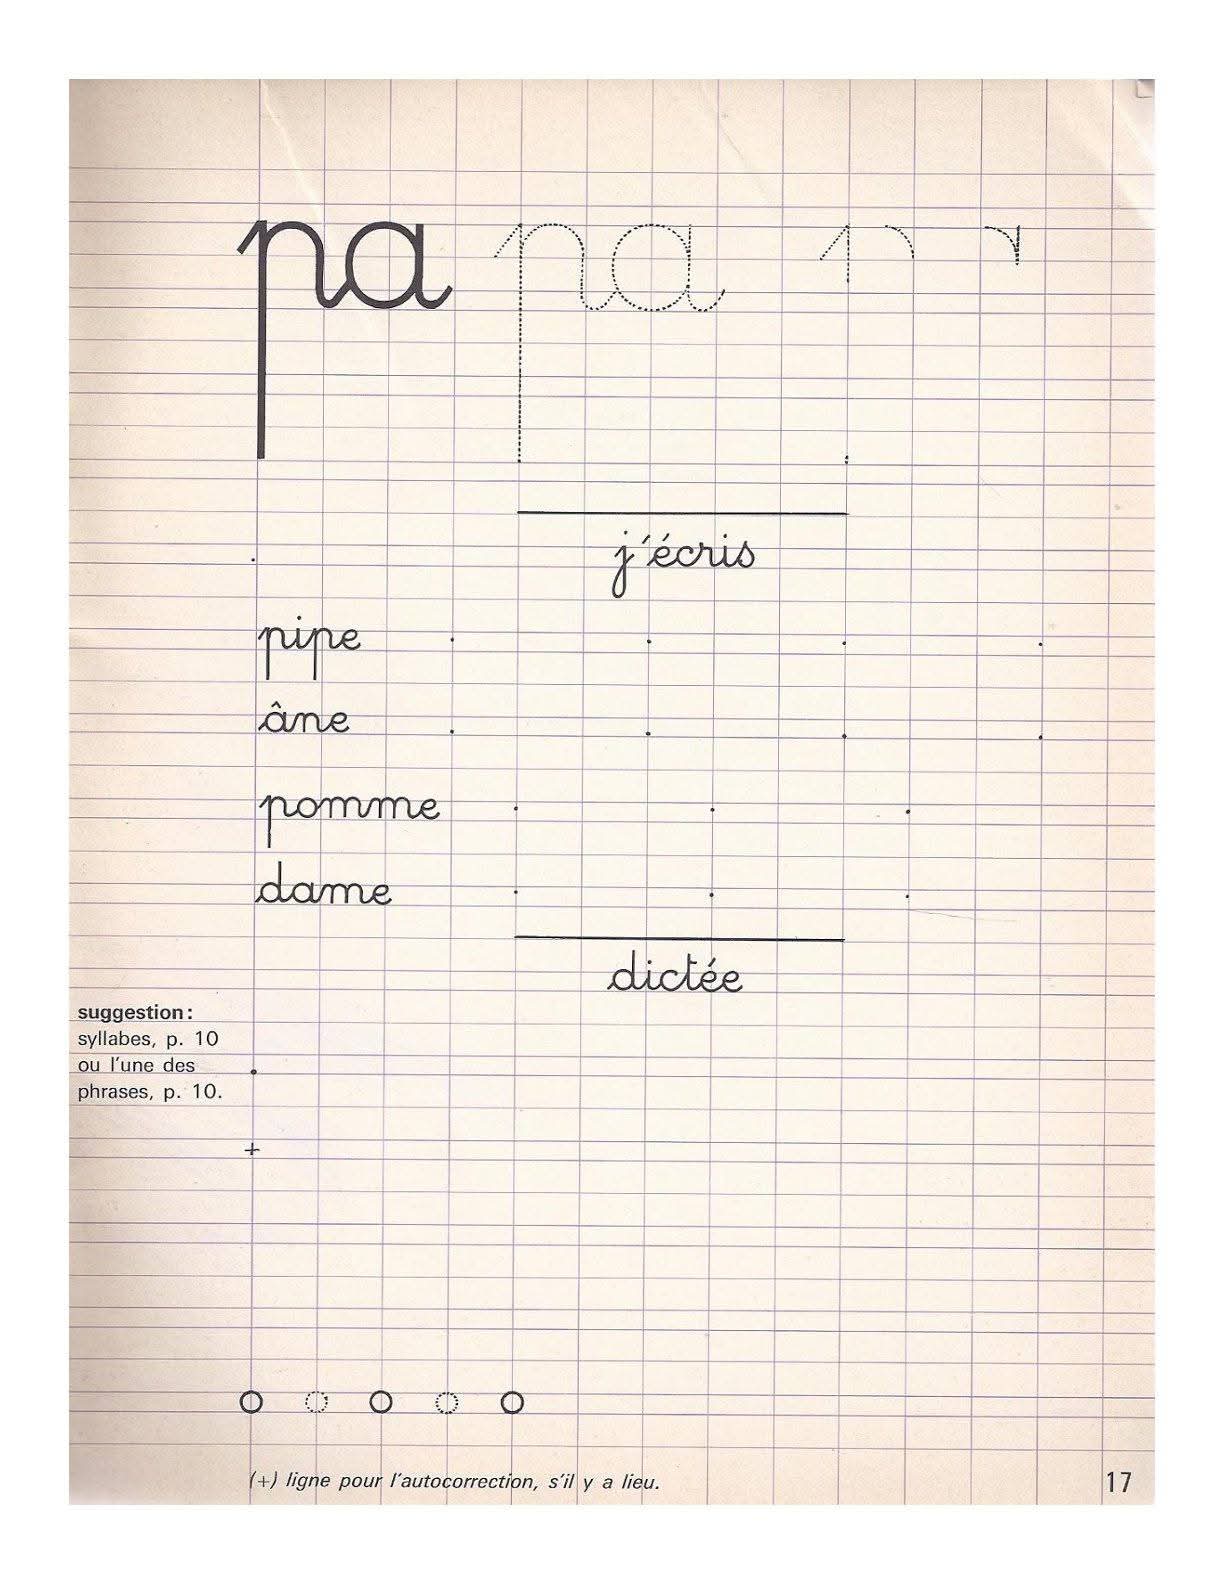 pa pa
j'écris
pipe
âne
pomme
dame
dictée
suggestion:
syllabes, p. 10
ou l'une des
phrases, p. 10.
+
(+) ligne pour l'autocorrection, s'il y a lieu.
17